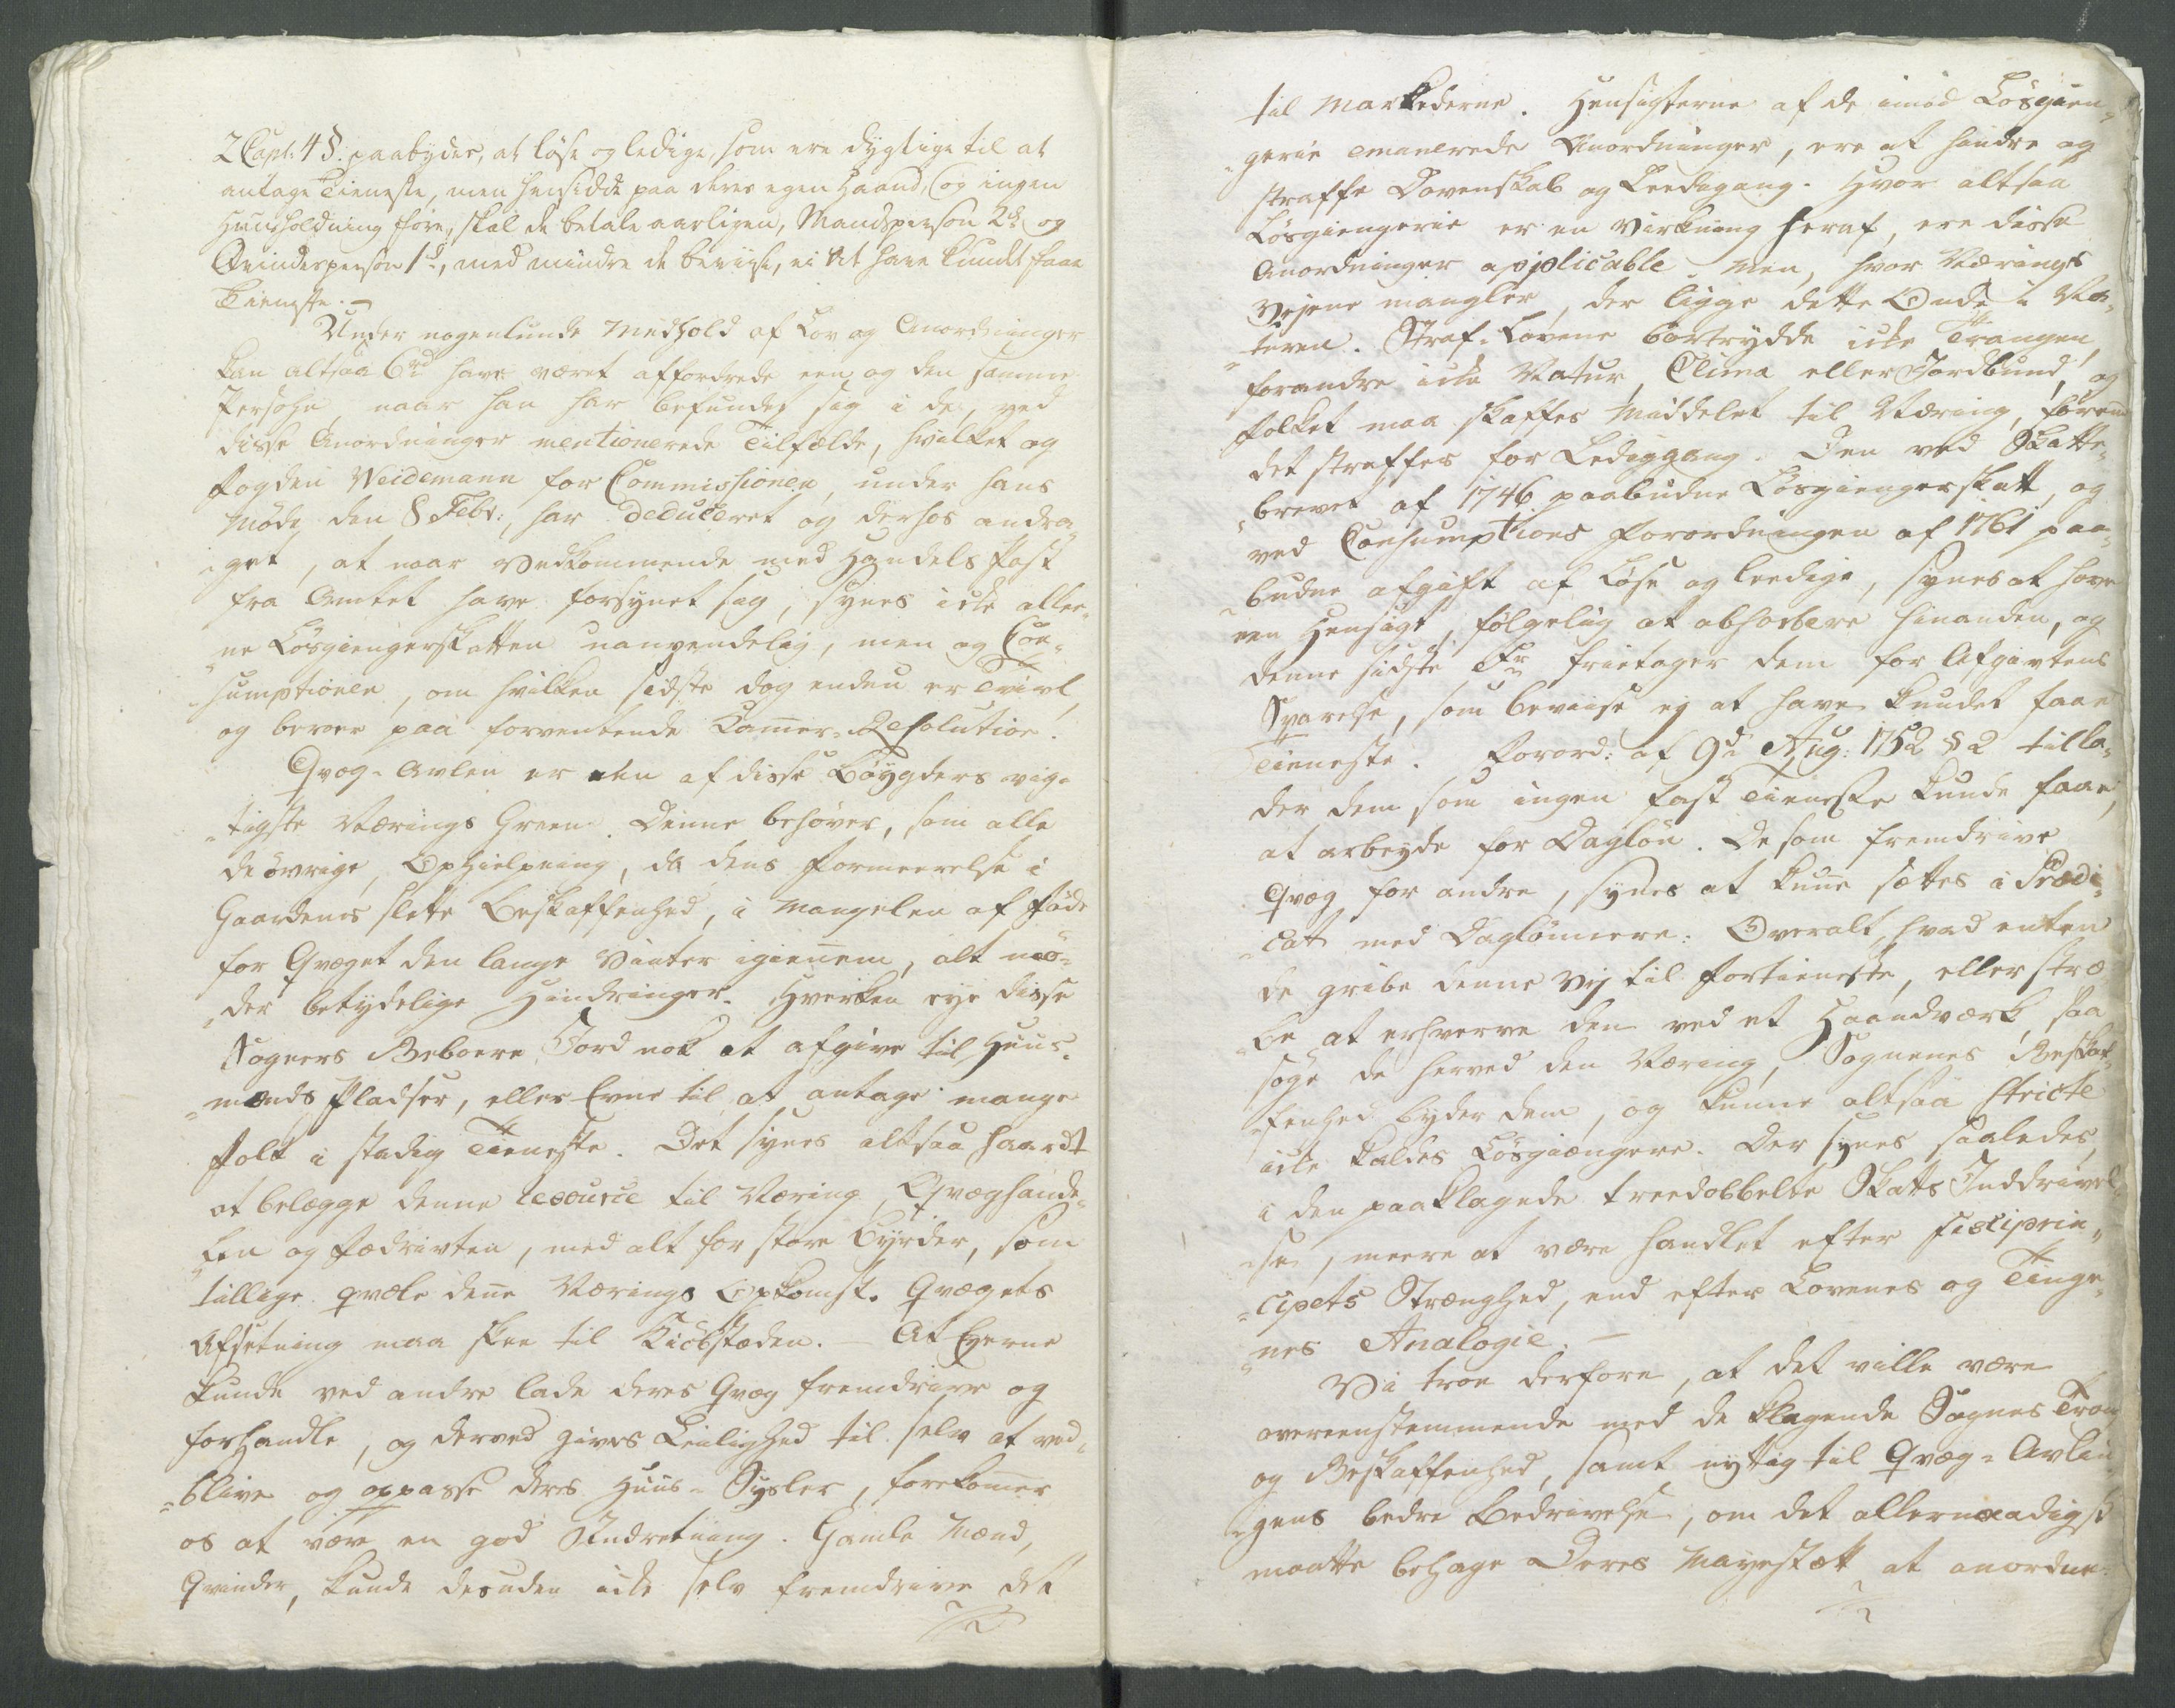 2 Capt: 4 §. paabyder, at løse og ledige, som ere dygtige til at
antage Tieneste, men hensidde paa deres egen Haand, og ingen
Huusholdning føre, skal de betale aarligen, Mandsperson 2 rd og
Qvindesperson 1 d, med mindre de beviise, ei at have kundet faae
Tieneste. -
Under nogenlunde Medhold af Lov og Anordninger
kan altsaa 6 rd have været affordrede een og den samme
Persohn, naar han har befundet sig i de, ved
disse Anordninger mentionerede Tilfælde, hvilket og
Fogden Weidemann for Commissionen, under hans
Møde den 8 Febr:, har deduceret og derhos andra-
get, at naar Vedkommende med Handels Pass
fra Amtet have forsynet sig, synes icke alle-
ne Løsgiengerskatten uanvendelig, men og Con-
sumptionen, om hvilken sidste dog endnu er Tvivl,
og beroer paa forventende Cammer-Resolution.
Qvæg-Avlen er den af disse Bøygders vig-
tigste Nærings Green. Denne behøver, som alle
de øvrige, Ophielpning, da dens Formeerelse i
Gaardenes slette Beskaffenhed, i Mangelen af Føde
for Qvæget den lange Vinter igiennem, alt mø-
der betydelige Hindringer. Hverken eye disse
Sogners Beboere Jord nok at afgive til Huus-
mænds Pladser, eller Evne til at antage mange
Folk i stadig Tieneste. Det synes altsaa haardt
at belægge denne resource til Næring, Qvæghande-
len og Fædrivten, med alt for store Byrder, som
tillige qvæle denne Nærings Opkomst. Qvægets
Afsetning maa skee til Kiøbstæden. - At Eyerne
kunde ved andre lade deres Qvæg fremdrive og
forhandle, og derved gives Leilighed til selv at ved-
blive og oppasse deres Huus-Sysler, forekommer
os at være en god Indretning. Gamle Mænd,
Qvinder, kunde desuden icke selv fremdrive det
til Markederne. Hensigterne af de imod Løsgien-
gerie emanerede Anordninger, ere at hindre og
straffe Dovenskab og Leedigang. Hvor altsaa
Løsgiengerie er en Virkning heraf, ere disse
Anordninger applicable. Men, hvor Nærings
Vejene mangler, der ligge dette Onde i Na-
turen. Straf-Lovene bortrydde icke Trangen,
forandre icke Natur, Clima eller Jordbund, og
Folket maa skaffes Middelet til Næring, førend
det straffes for Lediggang. Den ved Skatte-
brevet af 1746 paabudne Løsgiengerskatt, og
ved Consumptions Forordningen af 1761 paa-
budne afgift af Løse og leedige, synes at have
een Hensigt, følgelig at absorbere hinanden, og
denne sidste Fr frietager dem for Afgivtens
Svarelse, som beviise ej at have kundet faae
Tieneste. Forord: af 9de Aug: 1752 § 2 tilla-
der dem som ingen fast Tieneste kunde faae,
at arbeyde for Dagløn. De som fremdrive
Qvæg for andre, synes at kunne sættes i Prædi-
cat med Daglønnere. Overalt, hvad enten
de gribe denne Vej til Fortieneste, eller stræ-
be at erhverve den ved et Haandværk, saa
søge de herved den Næring, Sognenes Beskaf-
fenhed byder dem, og kunne altsaa stricte
icke kaldes Løsgiængere. Der synes saaledes,
i den paaklagede treedobbelte Skatts Inddrivel-
se, meere at være handlet efter Fisciprin-
cipets Strænghed, end efter Lovenes og Tinge-
nes Analogie. -
Vi troe derfore, at det ville være
overeenstemmende med de klagende Sognes Trang
og Beskaffenhed, samt nyttig til Qvæg-Avlin-
gens bedre Bedrivelse, om det allernaadigst
maatte behage Deres Mayestæt at anordne: